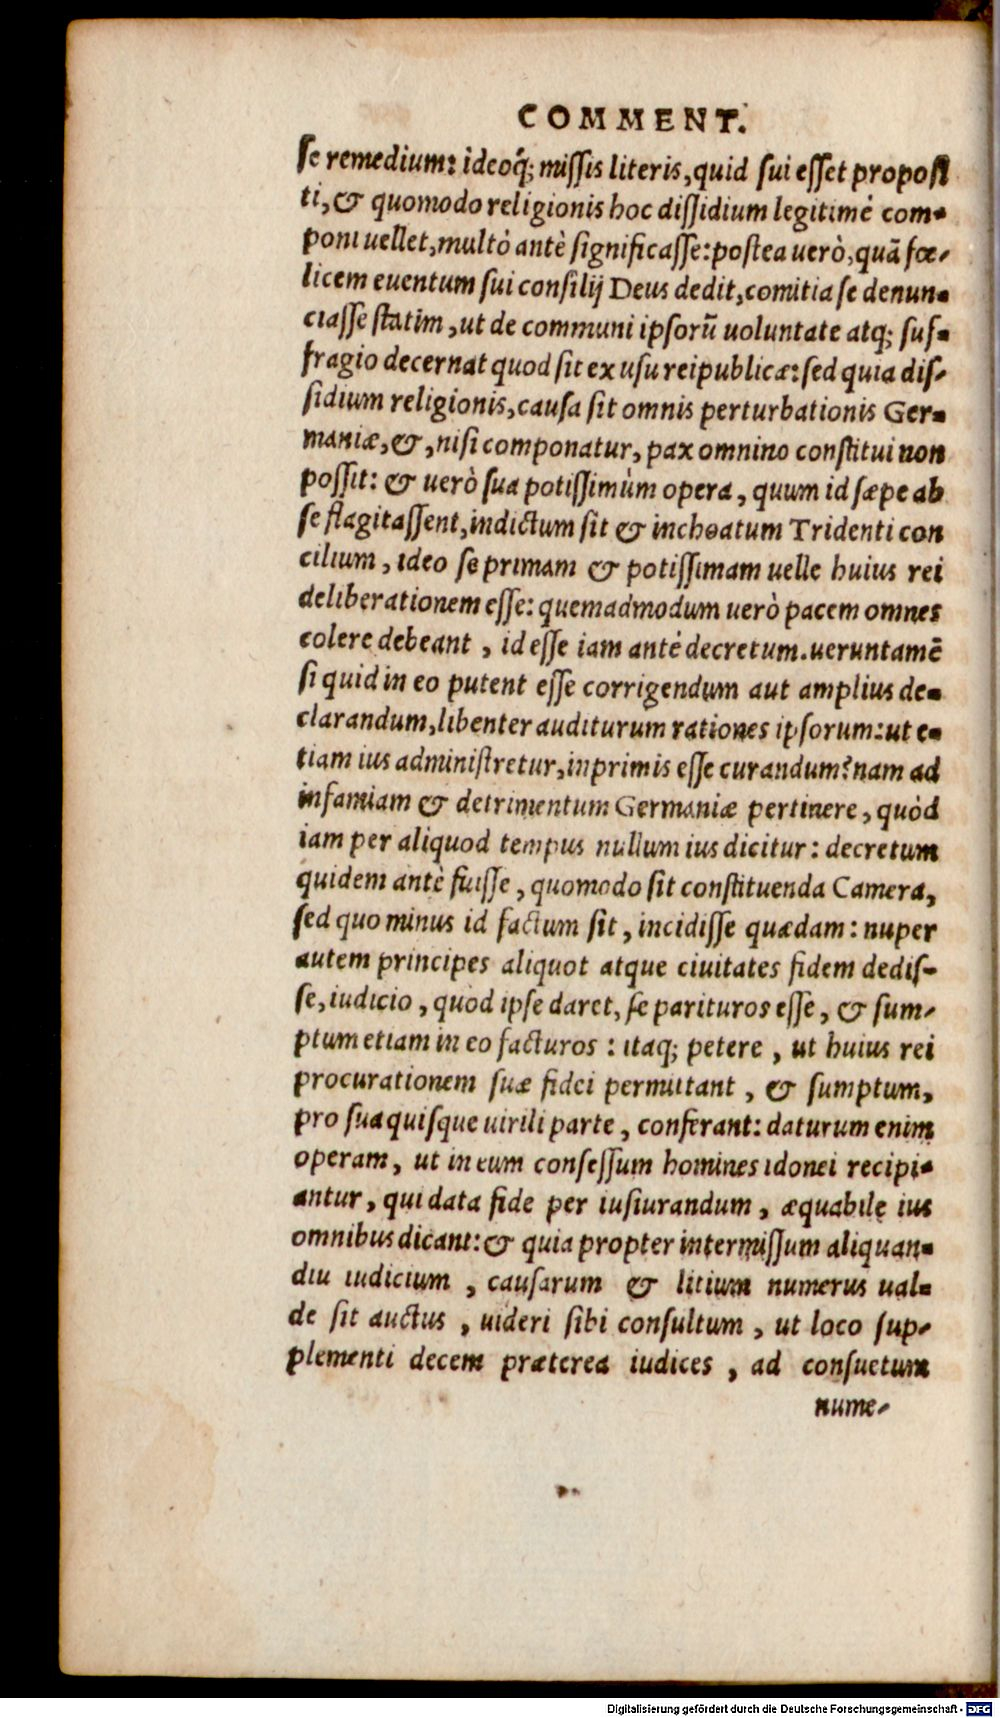 COMMENT.
se remedium: ideoq́; missis literis, quid sui esset proposi
ti, & quomodo religionis hoc dissidium legitimè com-
poni uellet, multò antè significasse: postea uerò, quā fœ-
licem euentum sui consilij Deus dedit, comitia se denun-
ciasse statim, ut de communi ipsorū uoluntate atq; suf-
fragio decernat quod sit ex usu reipublicæ: sed quia dis-
sidium religionis, causa sit omnis perturbationis Ger-
maniæ, &, nisi componatur, pax omnino constitui non
possit: & uerò sua potissimùm opera, quum id sæpe ab
se flagitassent, indictum sit & inchoatum Tridenti con
cilium, ideo se primam & potissimam uelle huius rei
deliberationem esse: quemadmodum uerò pacem omnes
colere debeant, id esse iam antè decretum. ueruntamē
si quid in eo putent esse corrigendum aut amplius de-
clarandum, libenter auditurum rationes ipsorum: ut e-
tiam ius administretur, inprimis esse curandum: nam ad
infamiam & detrimentum Germaniæ pertinere, quòd
iam per aliquod tempus nullum ius dicitur: decretum
quidem antè fuisse, quomodo sit constituenda Camera,
sed quo minus id factum sit, incidisse quædam: nuper
autem principes aliquot atque ciuitates fidem dedis-
se, iudicio, quod ipse daret, se parituros esse, & sum-
ptum etiam in eo facturos: itaq; petere, ut huius rei
procurationem suæ fidei permittant, & sumptum,
pro sua quisque uirili parte, conferant: daturum enim
operam, ut in eum consessum homines idonei recipi-
antur, qui data fide per iusiurandum, æquabile ius
omnibus dicant: & quia propter intermissum aliquan-
diu iudicium, causarum & litium numerus ual-
de sit auctus, uideri sibi consultum, ut loco sup-
plementi decem præterea iudices, ad consuetum
nume-
Digitalisierung gefördert durch die Deutsche Forschungsgemeinschaft - DFG